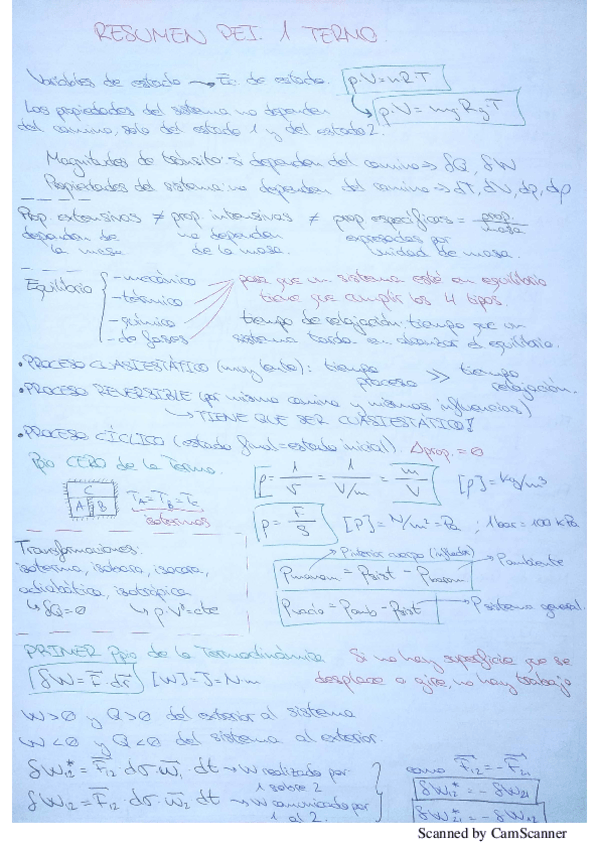 RESUMEN PEI. 1 TERMO.
Variables de estado → Ec. de estado. p·V=nRT
Las propiedades del sistema no dependen
del camino, solo del estado 1 y del estado 2. p·V = mg Rg T
Magnitudes de tránsito: si dependen del camino ⇒ δQ, δW
Propiedades del sistema: no dependen del camino ⇒ dT, dV, dp, dρ
Prop. extensivas ≠ prop. intensivas ≠ prop específicas = prop. / masa
dependen de la masa
no dependen de la masa.
expresadas por unidad de masa.
Equilibrio { - mecánico
- térmico
- químico
- de fases
para que un sistema esté en equilibrio
tiene que cumplir los 4 tipos.
tiempo de relajación: tiempo que un
sistema tarda en alcanzar el equilibrio.
• PROCESO CUASIESTÁTICO (muy lento): tiempo proceso >> tiempo relajación.
• PROCESO REVERSIBLE (por mismo camino y mismas influencias)
↳ TIENE QUE SER CUASIESTÁTICO!
• PROCESO CÍCLICO (estado final = estado inicial). Δprop. = 0
Ppio CERO de la Termo.
C
A B
TA = TB = TC
isotermos
ρ = 1/v = 1/(V/m) = m/V [ρ] = kg/m³
p = F/S [P] = N/m² = Pa ; 1 bar = 100 kPa
Transformaciones:
isoterma, isobara, isocora,
adiabática, isotrópica
↳ δQ=0 ↳ p·Vᵞ=cte
Pinterior cuerpo (inflador)
Pmanom = Psist - Pbarom
Pambiente
Pvacío = Pamb - Psist
P sistema general.
PRIMER Ppio de la Termodinámica
Si no hay superficie que se
desplace o gire, no hay trabajo
δW = F·dr [W] = J = N·m
W>0 y Q>0 del exterior al sistema
W<0 y Q<0 del sistema al exterior.
δW12* = F12 · dσ · w1 · dt → W realizado por 1 sobre 2
δW12 = F12 · dσ · w2 dt → W comunicado por 1 al 2.
como F12 = -F21
δW12* = - δW21
δW21* = - δW12
Scanned by CamScanner